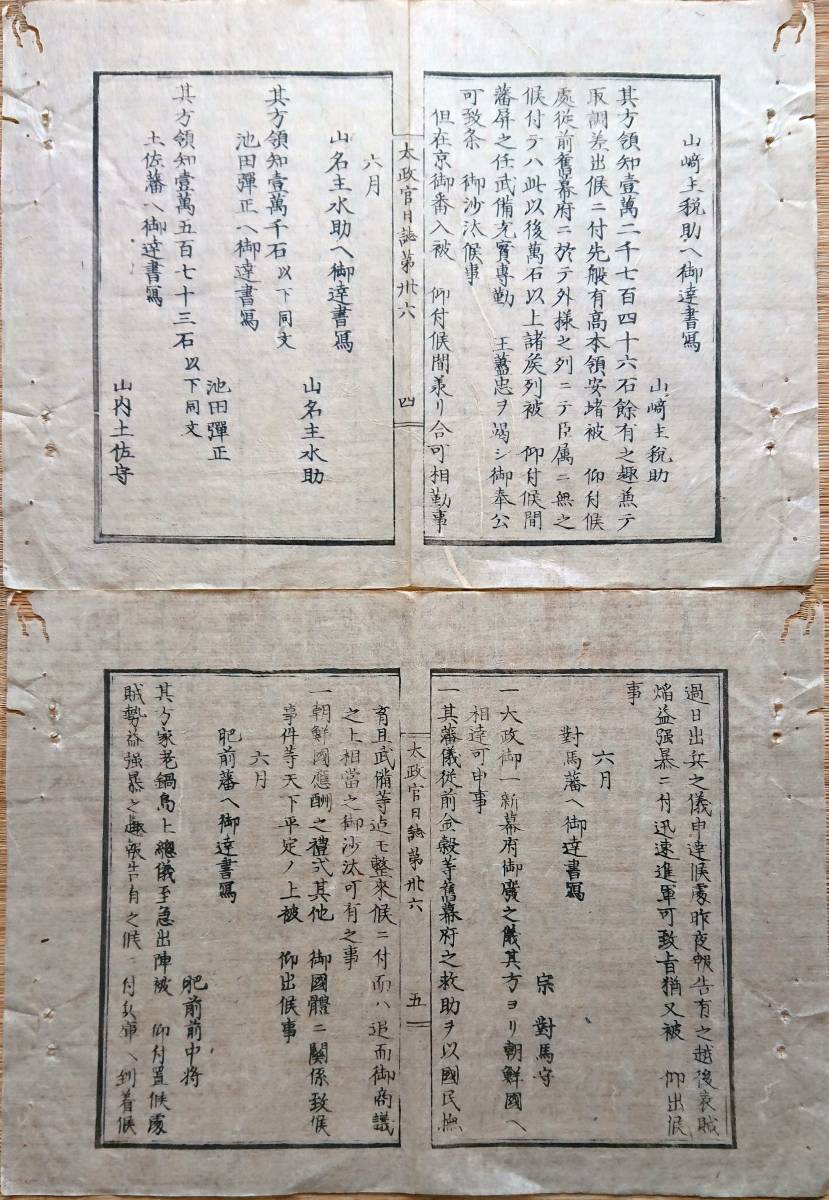 山﨑主税助ヘ御達書寫
山﨑主税助
其方領知壹萬二千七百四十六石餘有之趣兼テ
取調差出候ニ付先般有高本領安堵被 仰付候
處従前舊幕府ニ於テ外様之列ニテ臣属ニ無之
候付テハ此以後萬石以上諸矦列被 仰付候間
藩屏之任武備充實專勤 王藎忠ヲ竭シ御奉公
可致条 御沙汰候事
但在京御番入被 仰付候間兼リ合可相勤事
太政官日誌第卅六 四
六月
山名主水助ヘ御達書寫
山名主水助
其方領知壹萬千石以下同文
池田彈正ヘ御達書寫
池田彈正
其方領知壹萬五百七十三石以下同文
土佐藩ヘ御達書寫
山内土佐守
過日出兵之儀申達候處昨夜報告有之越後表賊
焔益强暴ニ付迅速進軍可致旨猶又被 仰出候
事
六月
對馬藩ヘ御達書寫
宗對馬守
一大政御一新幕府御廢之儀其方ヨリ朝鮮國ヘ
相達可申事
一其藩儀従前金穀等舊幕府之救助ヲ以國民撫
太政官日誌第卅六 五
育且武備等迠モ整來候ニ付而ハ追而御商議
之上相當之御沙汰可有之事
一朝鮮國應酬之禮式其他 御國體ニ關係致候
事件等天下平定ノ上被 仰出候事
六月
肥前藩ヘ御達書寫
肥前前中将
其方家老鍋島上總儀至急出陣被 仰付置候處
賊勢益强暴之趣報告有之候ニ付兵庫ヘ到着候